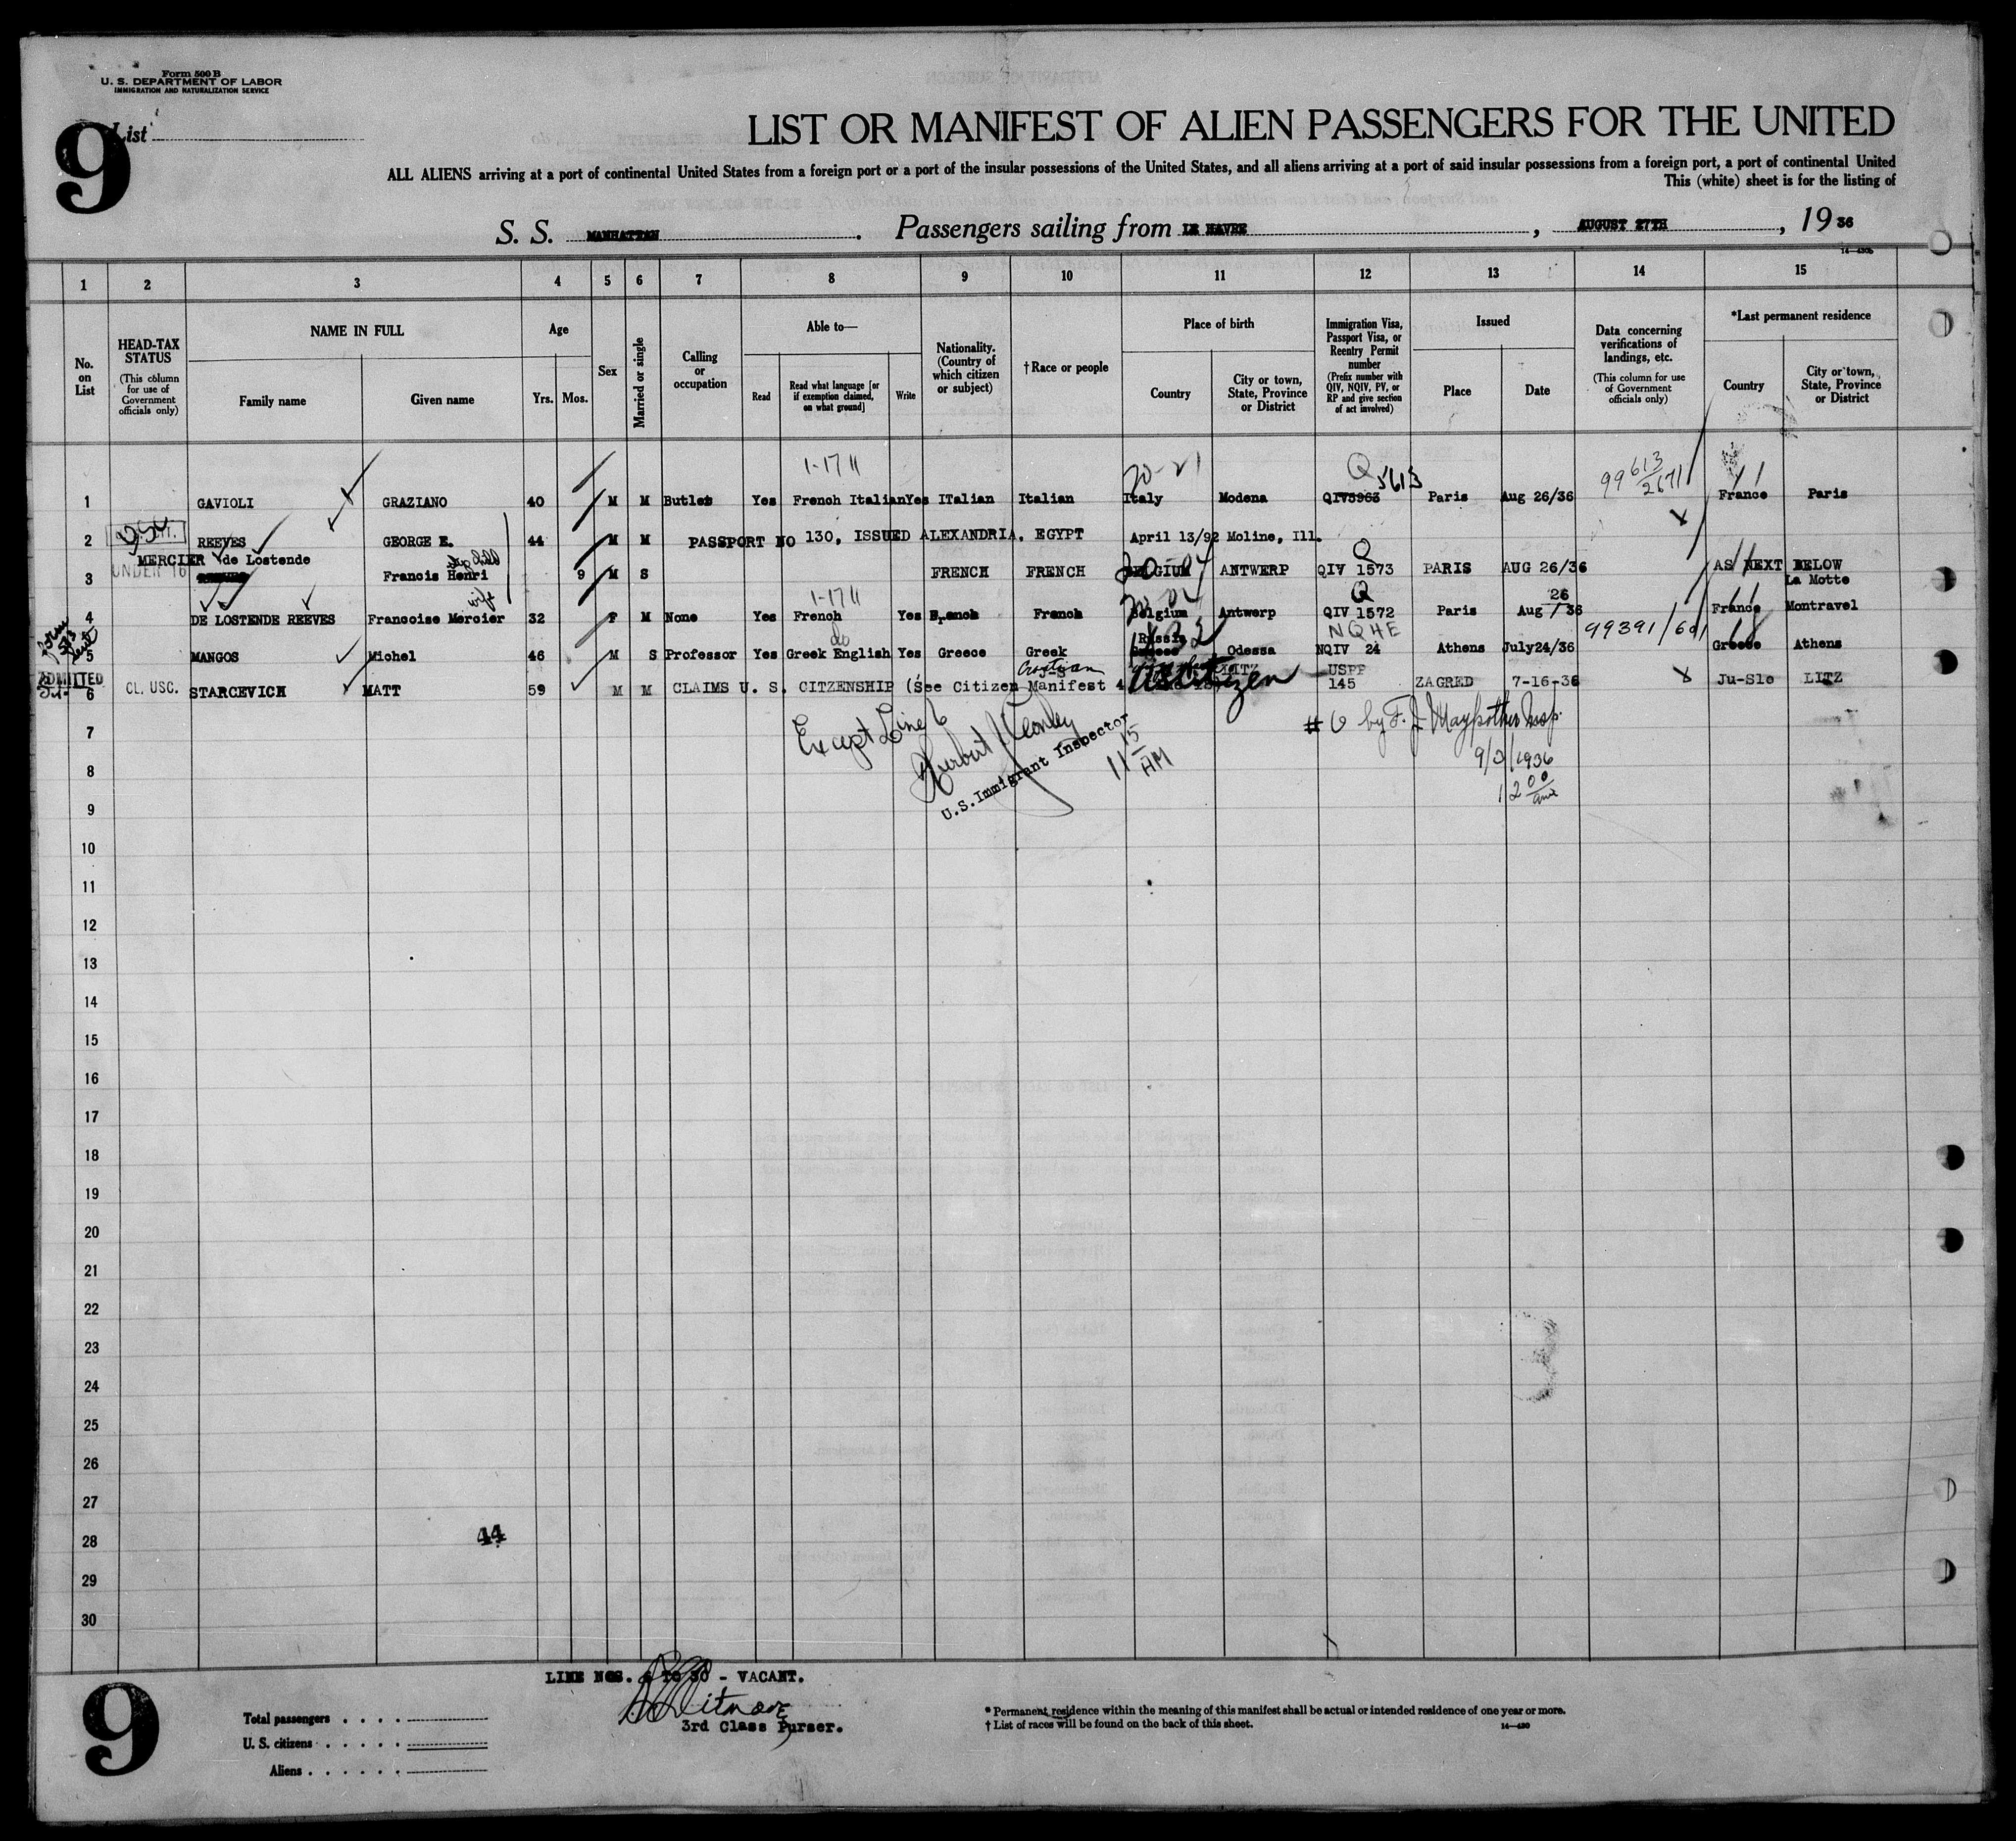 Form 500 B
U. S. DEPARTMENT OF LABOR
IMMIGRATION AND NATURALIZATION SERVICE
9
List
LIST OR MANIFEST OF ALIEN PASSENGERS FOR THE UNITED
ALL ALIENS arriving at a port of continental United States from a foreign port or a port of the insular possessions of the United States, and all aliens arriving at a port of said insular possessions from a foreign port, a port of continental United
This (white) sheet is for the listing of
S. S. MANHATTAN. Passengers sailing from LE HAVRE, AUGUST 27TH, 19 36
14—430b
1 2 3 4 5 6 7 8 9 10 11 12 13 14 15
No. on List
HEAD-TAX STATUS (This column for use of Government officials only)
NAME IN FULL
Family name Given name
Age
Yrs. Mos.
Sex
Married or single
Calling or occupation
Able to—
Read Read what language [or if exemption claimed, on what ground] Write
Nationality. (Country of which citizen or subject)
† Race or people
Place of birth
Country City or town, State, Province or District
Immigration Visa, Passport Visa, or Reentry Permit number (Prefix number with QIV, NQIV, PV, or RP and give section of act involved)
Issued
Place Date
Data concerning verifications of landings, etc. (This column for use of Government officials only)
*Last permanent residence
Country City or town, State, Province or District
1-17 11 20-21 Q 5613 99613/2671 11
1 GAVIOLI GRAZIANO 40 M M Butler Yes French Italian Yes ITalian Italian Italy Modena QIV5963 Paris Aug 26/36 France Paris
2 REEVES GEORGE E. 44 M M PASSPORT NO 130, ISSUED ALEXANDRIA, EGYPT April 13/92 Moline, Ill.
MERCIER de Lostende step child Q 11
UNDER 16
3 Francis Henri 9 M S FRENCH FRENCH BELGIUM ANTWERP QIV 1573 PARIS AUG 26/36 AS NEXT BELOW
wife 1-17 11 Q 26 11 La Motte
4 DE LOSTENDE REEVES Francoise Mercier 32 F M None Yes French Yes French French Belgium Antwerp QIV 1572 Paris Aug / 36 France Montravel
do Russia NQHE 99391/601
5 MANGOS Michel 46 M S Professor Yes Greek English Yes Greece Greek Greece Odessa NQIV 24 Athens July24/36 Greece Athens
ADMITTED Croatian J-S LITZ USPP
6 CL. USC. STARCEVICH MATT 59 M M CLAIMS U. S. CITZENSHIP (See Citizen Manifest 4 US citizen 145 ZAGRED 7-16-36 Ju-Slo LITZ
7
Except Line 6
U.S. Immigrant Inspector
11 15 AM
# 6 by F. J. Maypother Insp.
9/3/1936
12 00
8
9
10
11
12
13
14
15
16
17
18
19
20
21
22
23
24
25
26
27
28
44
29
30
LINE NOS. 6 TO 30 - VACANT.
3rd Class Purser.
9
Total passengers
U. S. citizens
Aliens
* Permanent residence within the meaning of this manifest shall be actual or intended residence of one year or more.
† List of races will be found on the back of this sheet.
14—430